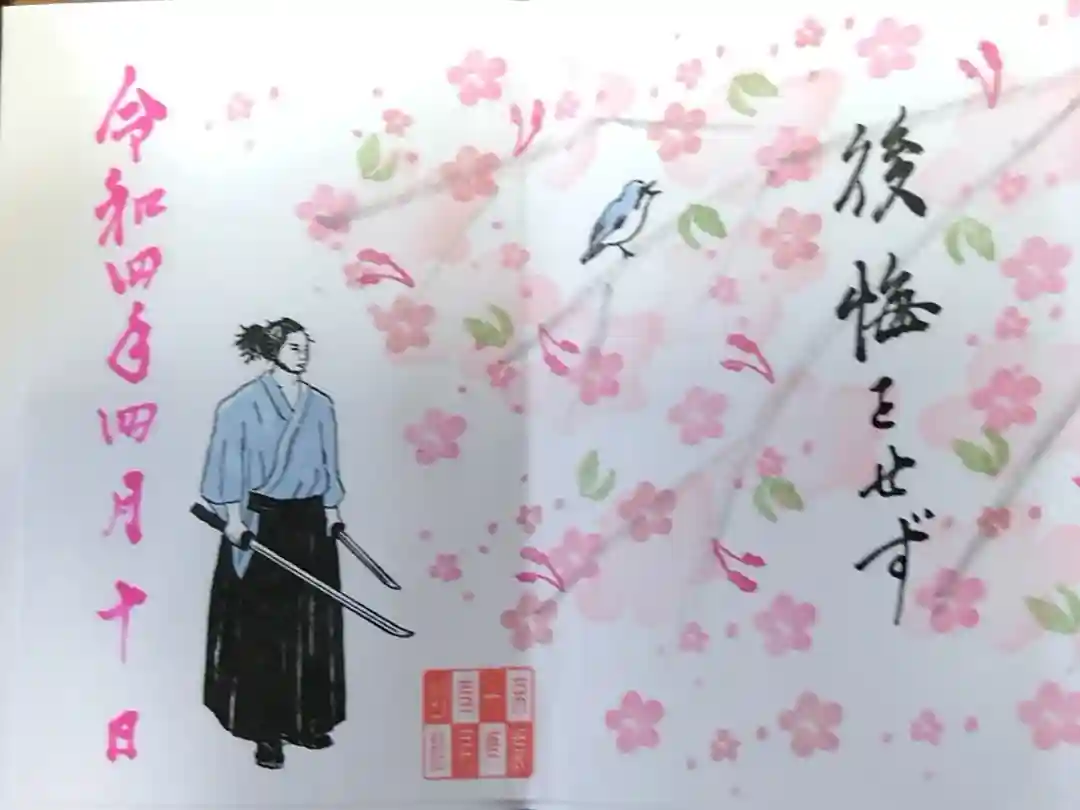 後悔をせず
令和四年四月十日